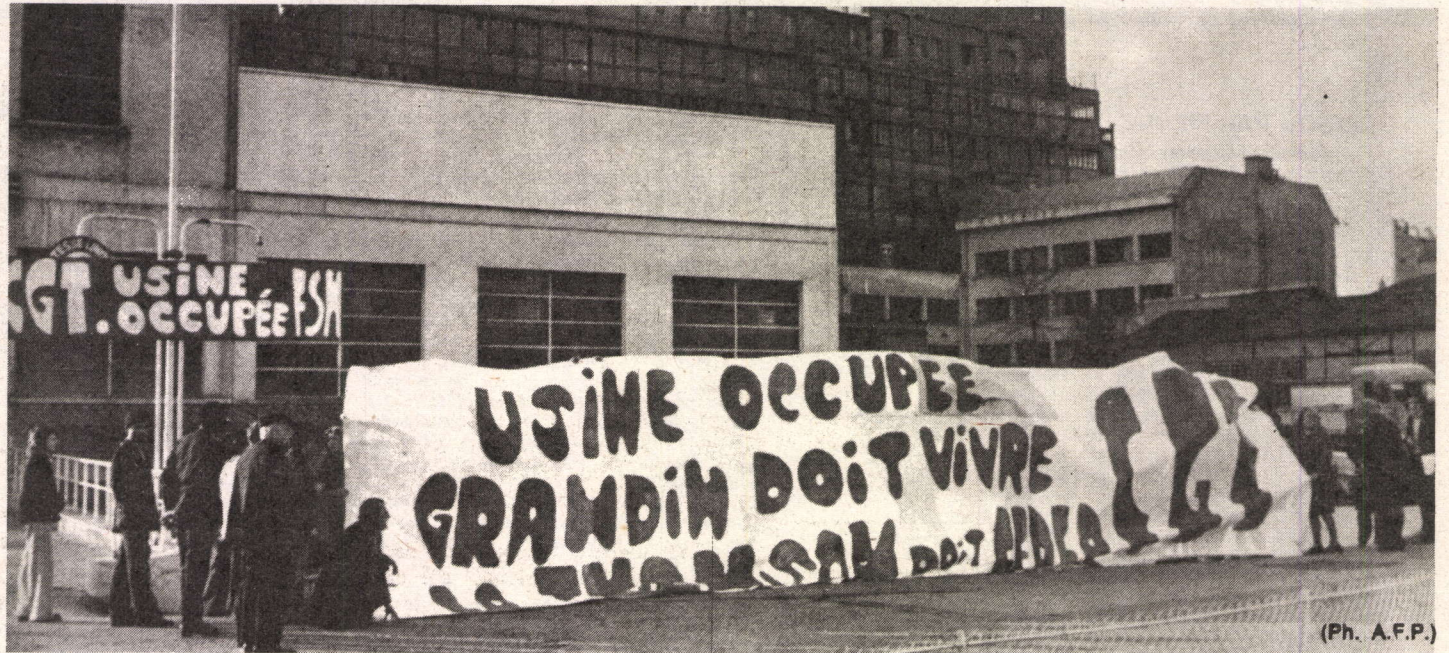 CGT. USiNE OCCUPÉE FSM
USiNE OCCUPEE
GRANDiN DOiT VIVRE
THOMSON DOiT CEDER
(Ph. A.F.P.)